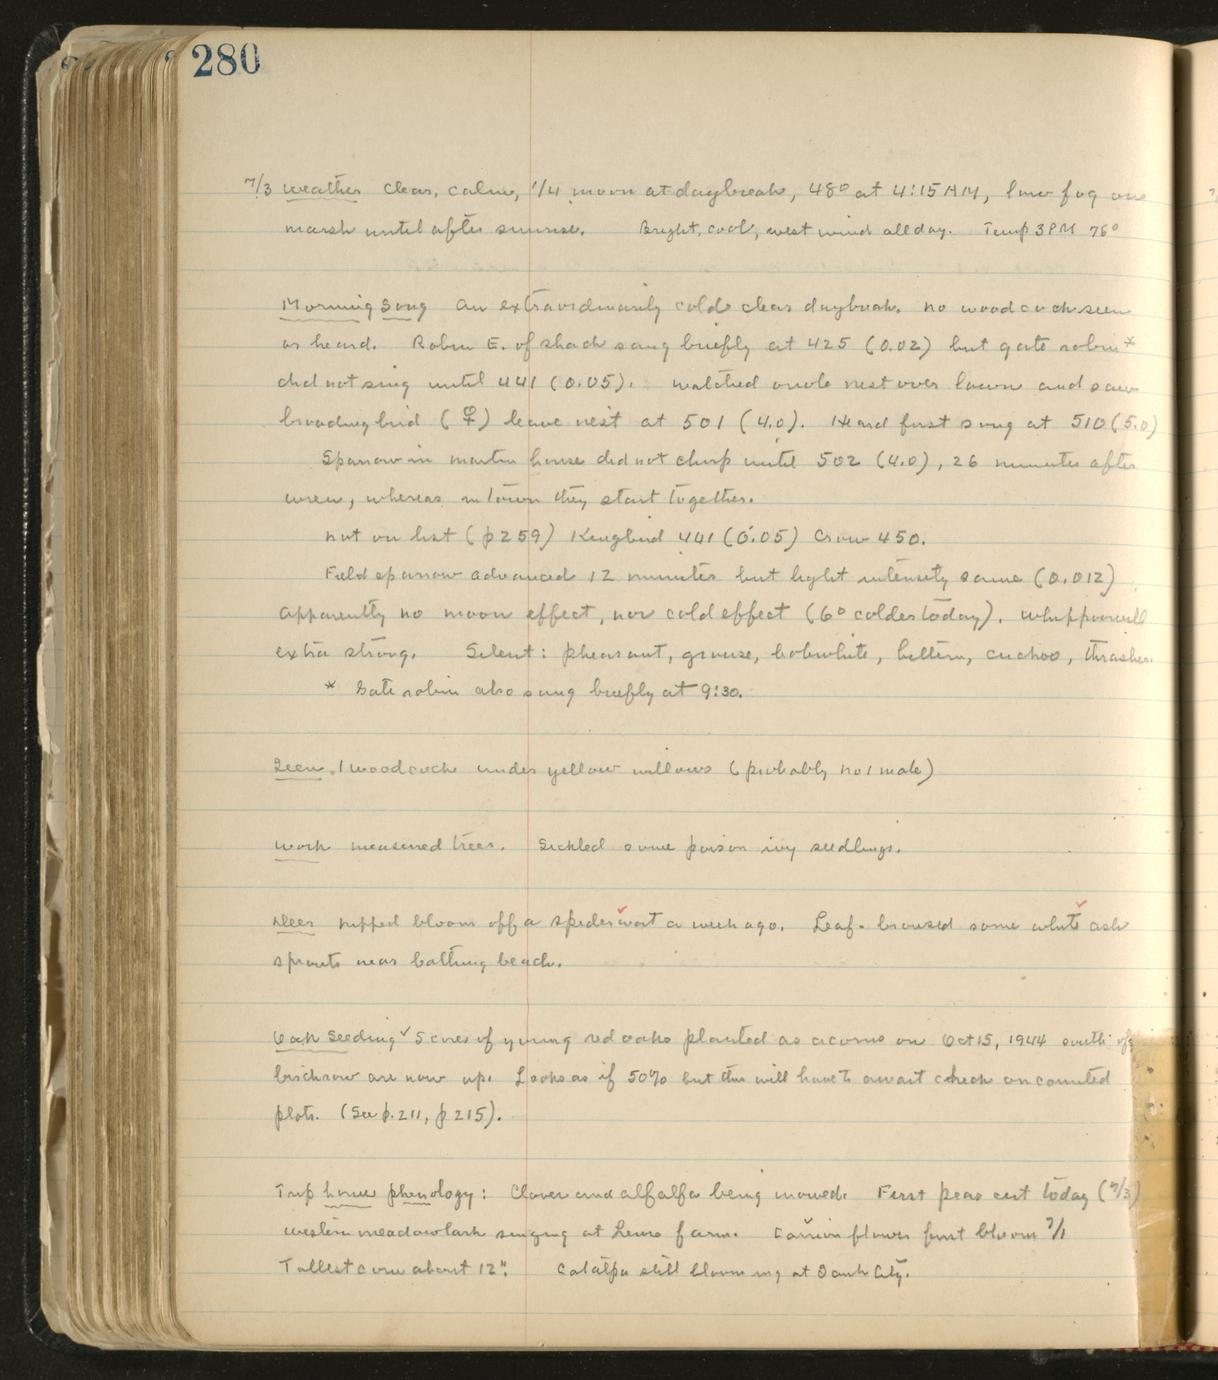 280
7/3 Weather Clear, calm, 1/4 moon at daybreak, 48° at 4:15 AM, low fog over
marsh until after sunrise. Bright, cool, west wind all day. Temp 3PM 76°
Morning Song An extraordinarily cold clear daybreak. No woodcock seen
or heard. Robin E. of shack sang briefly at 425 (0.02) but gate robin*
did not sing until 441 (0.05). Watched oriole nest over lawn and saw
brooding bird (♀) leave nest at 501 (4.0). Heard first song at 510 (5.0)
Sparrow in martin house did not chirp until 502 (4.0), 26 minutes after
wren, whereas in town they start together.
Not on list (p259) Kingbird 441 (0.05) Crow 450.
Field sparrow advanced 12 minutes but light intensity same (0.012)
Apparently no moon effect, nor cold effect (6° colder today). Whippoorwill
extra strong. Silent: pheasant, grouse, bobwhite, bittern, cuckoo, thrasher.
* Gate robin also sang briefly at 9:30.
Seen. 1 woodcock under yellow willows (probably no 1 male)
Work measured trees. Sickled some poison ivy seedlings.
Deer nipped bloom off a spiderwort a week ago. Leaf-browsed some white ash
sprouts near bathing beach.
Oak Seeding ✓ Scores of young red oaks planted as acorns on Oct 15, 1944 south of
birchrow are now up. Looks as if 50% but this will have to await check on counted
plots. (See p. 211, p 215).
Trip home phenology: Clover and alfalfa being mowed. First peas cut today (7/3)
western meadowlark singing at Lewis farm. Carrion flower first bloom 7/1
Tallest corn about 12". Catalpa still blooming at Sauk City.